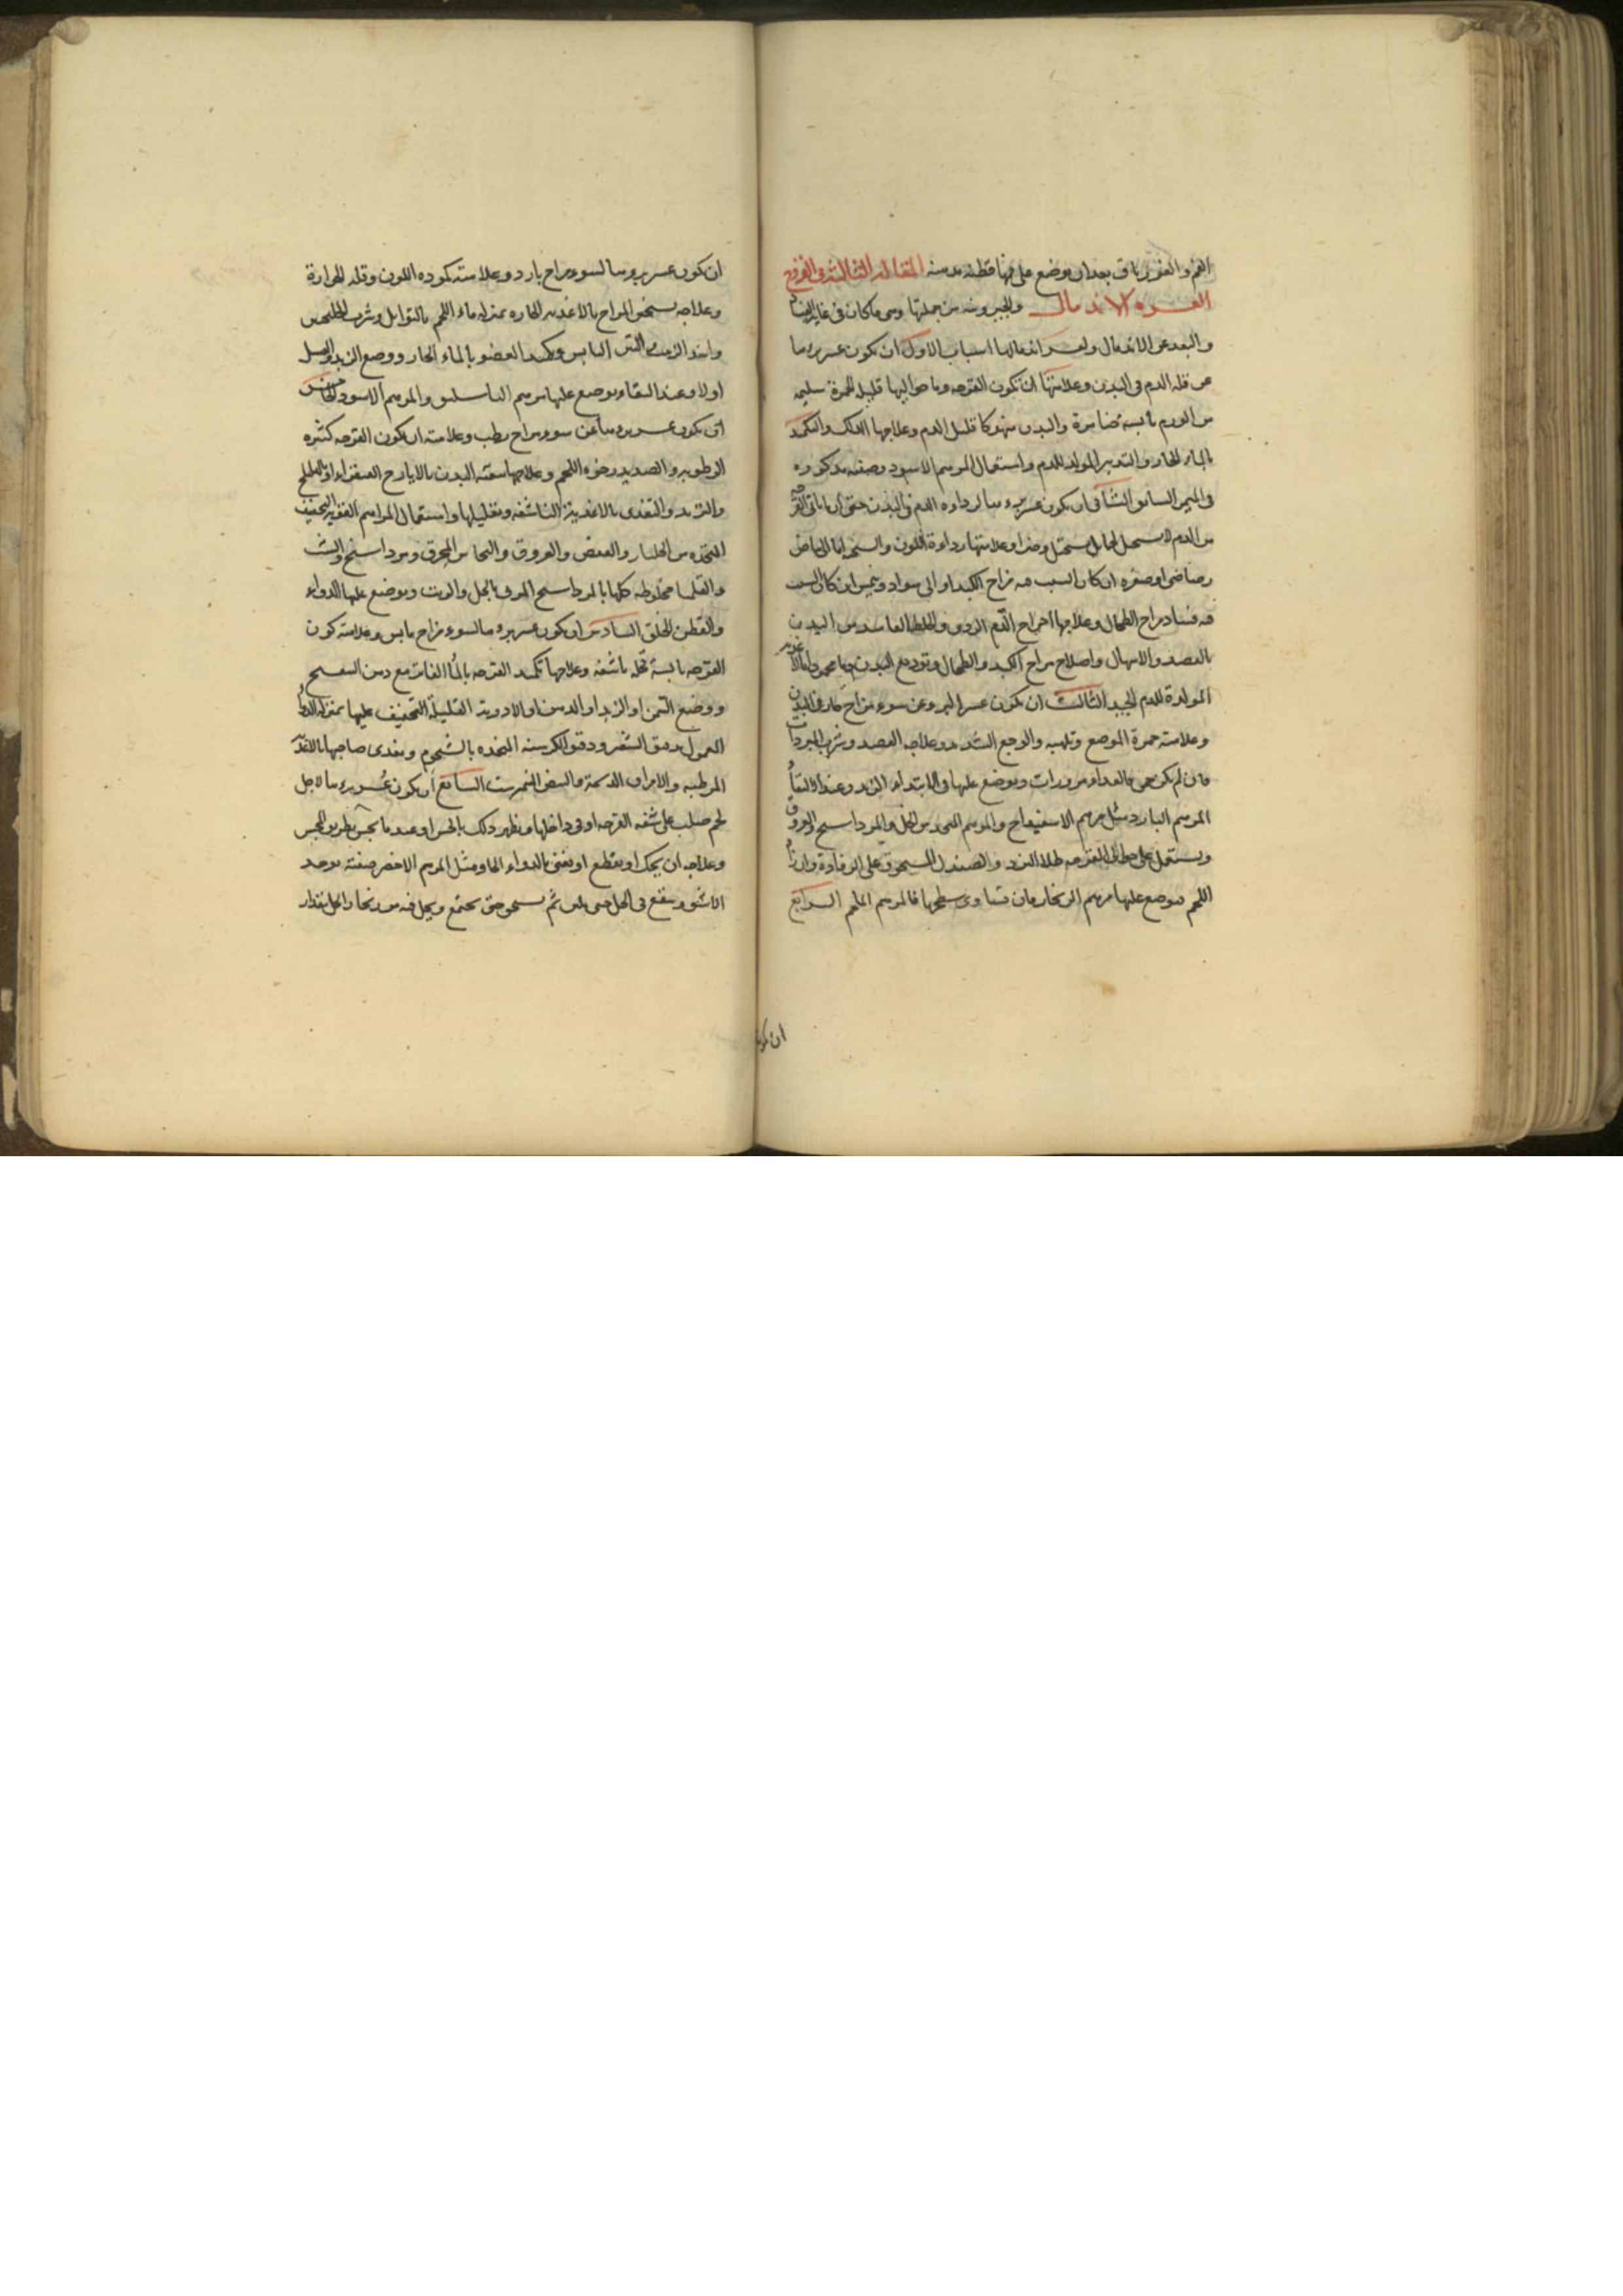 الفم والغور باق بعد ان يوضع على فمها قطنه مدهنه المقاله الثالثة فى القروح
العسره الاندمال والخيرونيه من جملتها وهى ما كان فى غايه الفساد
والبعد عن الاندمال ولعسر اندمالها اسباب الاول ان يكون عسر برءها
عن قله الدم فى البدن وعلامتها ان تكون القرحه وما حواليها قليله الحمرة سليمه
من الورم يابسه ضامرة والبدن منهوكا قليل الدم وعلاجها الدلك والتكميد
بالماء الحار والتدبير المولد للدم واستعمال المرهم الاسود وصفته مذكوره
فى السابق الثانى ان يكون عسر برءها لرداءه الدم فى البدن حتى ان ما ياتى القرحه
من الدم لا يستحيل لحما بل يستحيل وضرا وعلامتها رداءة اللون والسحنه اما الى بياض
رصاصى او صفره ان كان السبب فيه مزاج الكبد او الى سواد ونمش ان كان السبب
فيه فساد مزاج الطحال وعلاجها اخراج الدم الردى والخلط الفاسد من البدن
بالفصد والاسهال واصلاح مزاج الكبد والطحال وتوديع البدن بالاغذيه
المولدة للدم الجيد الثالث ان يكون عسر البرء عن سوء مزاج حار فى البدن
وعلامته حمرة الموضع وتلهبه والوجع الشديد وعلاجه الفصد وشرب المبردات
فان لم يكن حمى فالغداء مزورات ويوضع عليها فى الابتداء الزبد وعند النقاء
المرهم البارد مثل مرهم الاسفيداج والمرهم المتخذ من الخل والمرداسنج والعروق
ويستعمل على حوالى القرحه طلاء البزد والصندل المسحوق على الرفادة وان زاد
اللحم فيوضع عليها مرهم الزنجار فان تساوى سطحها فالمرهم الملحم الرابع
ان يكون
ان يكون عسر برءها لسوء مزاج بارد وعلامته كموده اللون وقله الحرارة
وعلاجه تسخين المزاج بالاغذيه الحاره بمنزله ماء اللحم بالتوابل وشرب
ونبيذ الزبيب والتين اليابس وتكميد العضو بالماء الحار ووضع الزبد والعسل
اولا وعند النقاء يوضع عليها مرهم الباسليقون والمرهم الاسود الخامس
ان يكون عسر برءها عن سوء مزاج رطب وعلامته ان يكون القرحه كثيره
الرطوبه والصديد رخوه اللحم وعلاجها تنقيه البدن بالايارج الصفراء او الهليلج
والتربد والتغذى بالاغذية الناشفه وتقليلها واستعمال المراهم القويه التجفيف
المتخذه من الجلنار والعفص والعروق والنحاس المحرق ومرداسنج والشب
والقليميا مخلوطه كلها بالمرداسنج المربى بالخل والزيت ويوضع عليها الدواء
والقطن الخلق السادس ان يكون عسر برءها لسوء مزاج يابس وعلامته كون
القرحه يابسة قحله ناشفه وعلاجها تكميد القرحه بالماء الفاتر مع دهن البنفسج
ووضع السمن او الزبد او الدهن او الادوية القليلة التجفيف عليها بمنزله الدواء
المعمول بدقيق الشعير ودقيق الكرسنه المتخذه بالشحوم ويغذى صاحبها بالاغذيه
المرطبه والامراق الدسمة والبيض النيمرشت السابع ان يكون عسر برءها لاجل
لحم صلب على شفه القرحه او فى داخلها ويظهر ذلك بالحس او عند ما يجس بطريق المجس
وعلاجه ان يحك او يقطع او يفنى بالدواء الحاد ومثل المرهم الاخضر صفته يوخذ
الاشق وينقع فى الخل حتى يلين ثم يسحق حتى يجتمع ويجعل فيه من زنجار الخل بمقدار